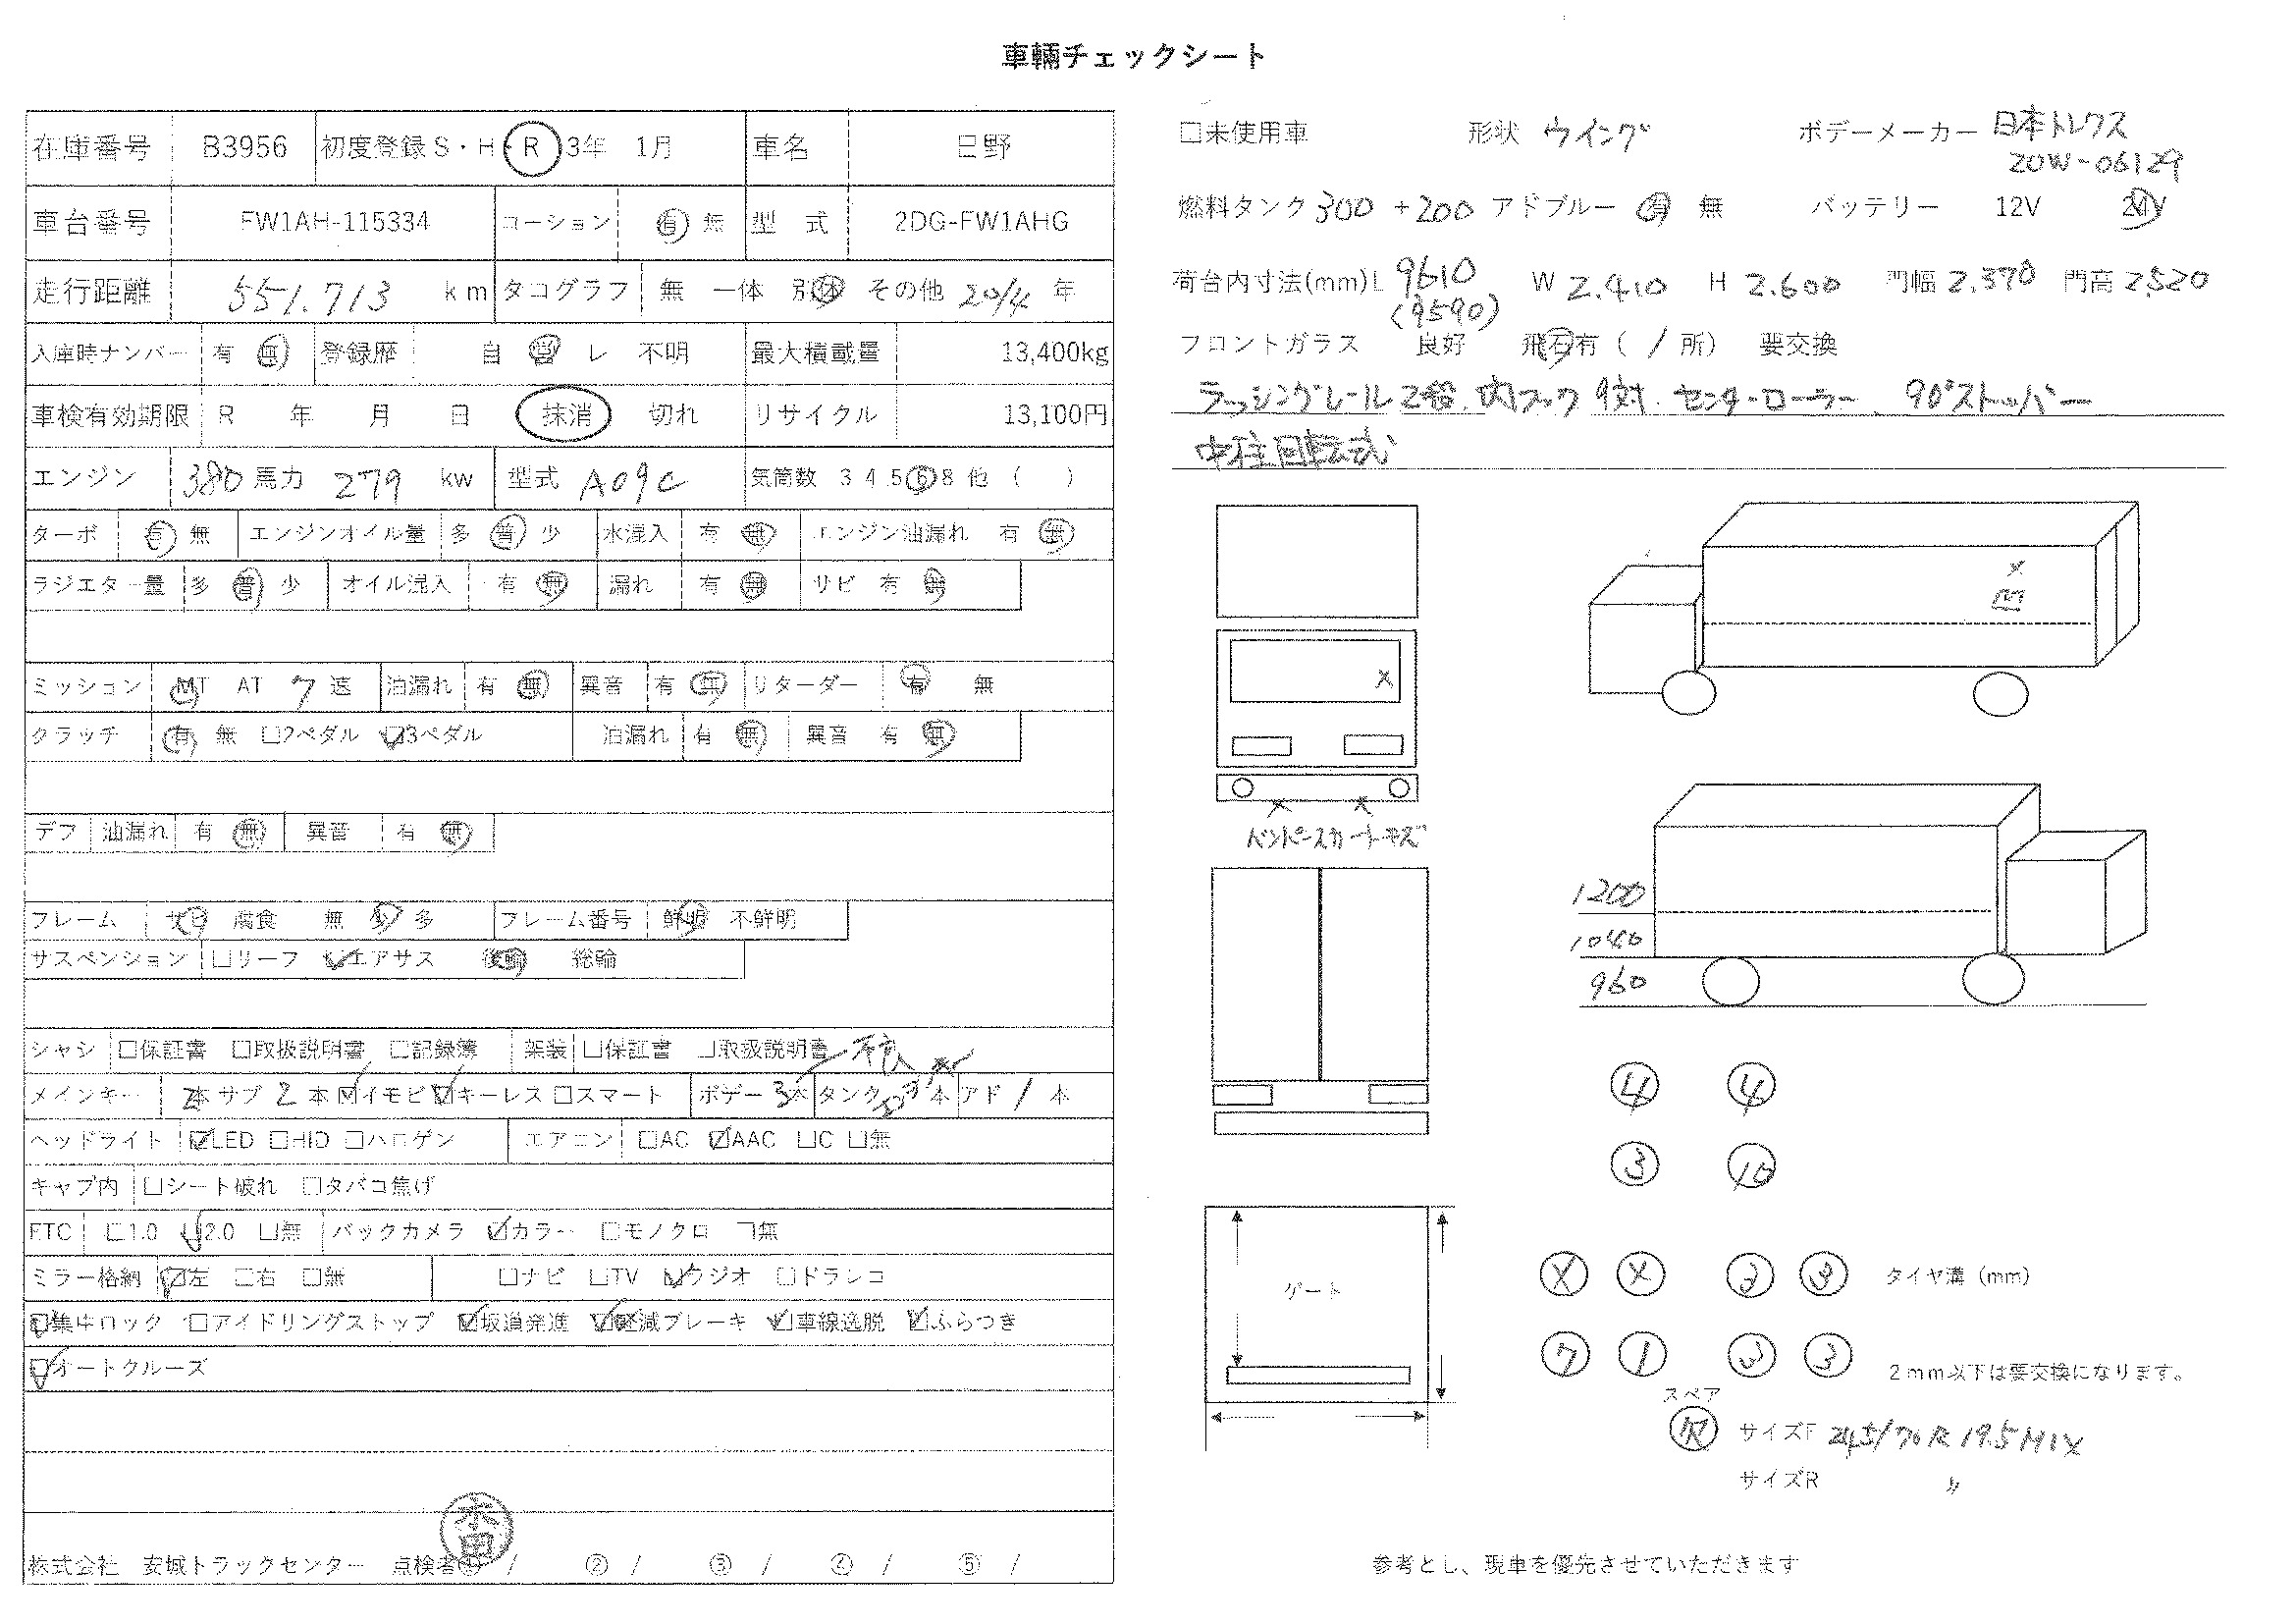 車輌チェックシート
在庫番号 B3956 初度登録 S・H・R 3年 1月 車名 日野
車台番号 FW1AH-115334 コーション 有 無 型 式 2DG-FW1AHG
走行距離 551.713 km タコグラフ 無 一体 別体 その他 20/4 年
入庫時ナンバー 有 無 登録歴 自 営 レ 不明 最大積載量 13,400kg
車検有効期限 R 年 月 日 抹消 切れ リサイクル 13,100円
エンジン 380 馬力 279 kw 型式 A09C 気筒数 3 4 5 6 8 他 ( )
ターボ 有 無 エンジンオイル量 多 普 少 水混入 有 無 エンジン油漏れ 有 無
ラジエター量 多 普 少 オイル混入 有 無 漏れ 有 無 サビ 有 無
ミッション MT AT 7 速 油漏れ 有 無 異音 有 無 リターダー 有 無
クラッチ 有 無 □2ペダル ☑3ペダル 油漏れ 有 無 異音 有 無
デフ 油漏れ 有 無 異音 有 無
フレーム サビ 腐食 無 少 多 フレーム番号 鮮明 不鮮明
サスペンション □リーフ ☑エアサス 後輪 総輪
シャシ □保証書 □取扱説明書 □記録簿 架装 □保証書 □取扱説明書
メインキー 2本 サブ 2本 ☑イモビ ☑キーレス □スマート ボデー 3本 タンク 本 アド 1 本
ヘッドライト ☑LED □HID □ハロゲン エアコン □AC ☑AAC □C □無
キャブ内 □シート破れ □タバコ焦げ
ETC □1.0 ☑2.0 □無 バックカメラ ☑カラー □モノクロ □無
ミラー格納 ☑左 □右 □無 □ナビ □TV ☑ラジオ □ドラレコ
☑集中ロック □アイドリングストップ ☑坂道発進 ☑軽減ブレーキ ☑車線逸脱 ☑ふらつき
☑オートクルーズ
株式会社 安城トラックセンター 点検者① / ② / ③ / ④ / ⑤ /
□未使用車 形状 ウイング ボデーメーカー 日本トレクス
ZOW-06129
燃料タンク 300 +200 アドブルー 有 無 バッテリー 12V 24V
荷台内寸法(mm)L 9610 W 2.410 H 2.600 門幅 2.370 門高 2520
(9590)
フロントガラス 良好 飛石有 ( / 所) 要交換
ラッシングレール2段.内フック9対.センターローラー.90°ストッパー
中柱回転式
×
凹
×
× ×
バンパースカートキズ
1200
1040
960
④ ④
③ ⑩
ゲート
× × タイヤ溝（mm）
⑦ ① ③ 2mm以下は要交換になります。
スペア
サイズF 245/70R 19.5 MIX
サイズR 〃
参考とし、現車を優先させていただきます